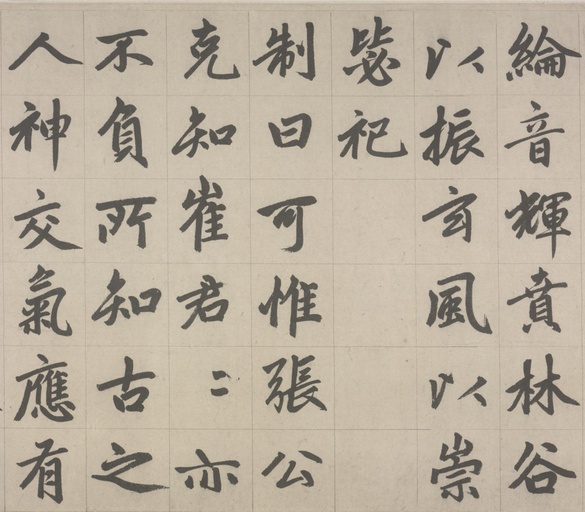 綸音輝賁林谷
以振玄風以崇
毖祀
制曰可惟張公
克知崔君〻亦
不負所知古之
人神交氣應有